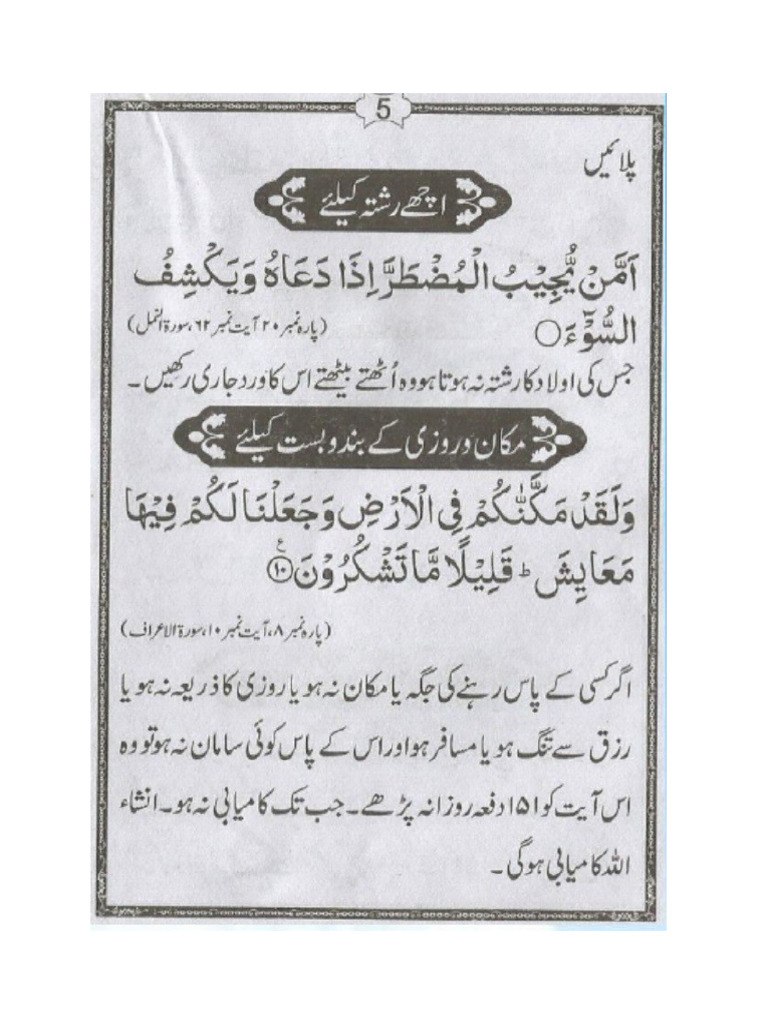 5
پلائیں
اچھے رشتہ کیلئے
اَمَّنْ یُّجِیْبُ الْمُضْطَرَّ اِذَا دَعَاہُ وَیَکْشِفُ
السُّوْٓءَ ○ (پارہ نمبر ۲۰ آیت نمبر ۶۲، سورۃ النمل)
جس کی اولاد کا رشتہ نہ ہوتا ہو وہ اُٹھتے بیٹھتے اس کا ورد جاری رکھیں۔
مکان و روزی کے بندوبست کیلئے
وَلَقَدْ مَکَّنّٰکُمْ فِی الْاَرْضِ وَجَعَلْنَا لَکُمْ فِیْھَا
مَعَایِشَ ؕ قَلِیْلًا مَّا تَشْکُرُوْنَ ﴿۱۰﴾ ع
(پارہ نمبر ۸، آیت نمبر ۱۰، سورۃ الاعراف)
اگر کسی کے پاس رہنے کی جگہ یا مکان نہ ہو یا روزی کا ذریعہ نہ ہو یا
رزق سے تنگ ہو یا مسافر ہو اور اس کے پاس کوئی سامان نہ ہو تو وہ
اس آیت کو ۱۵۱ دفعہ روزانہ پڑھے۔ جب تک کامیابی نہ ہو۔ انشاء
اللہ کامیابی ہوگی۔